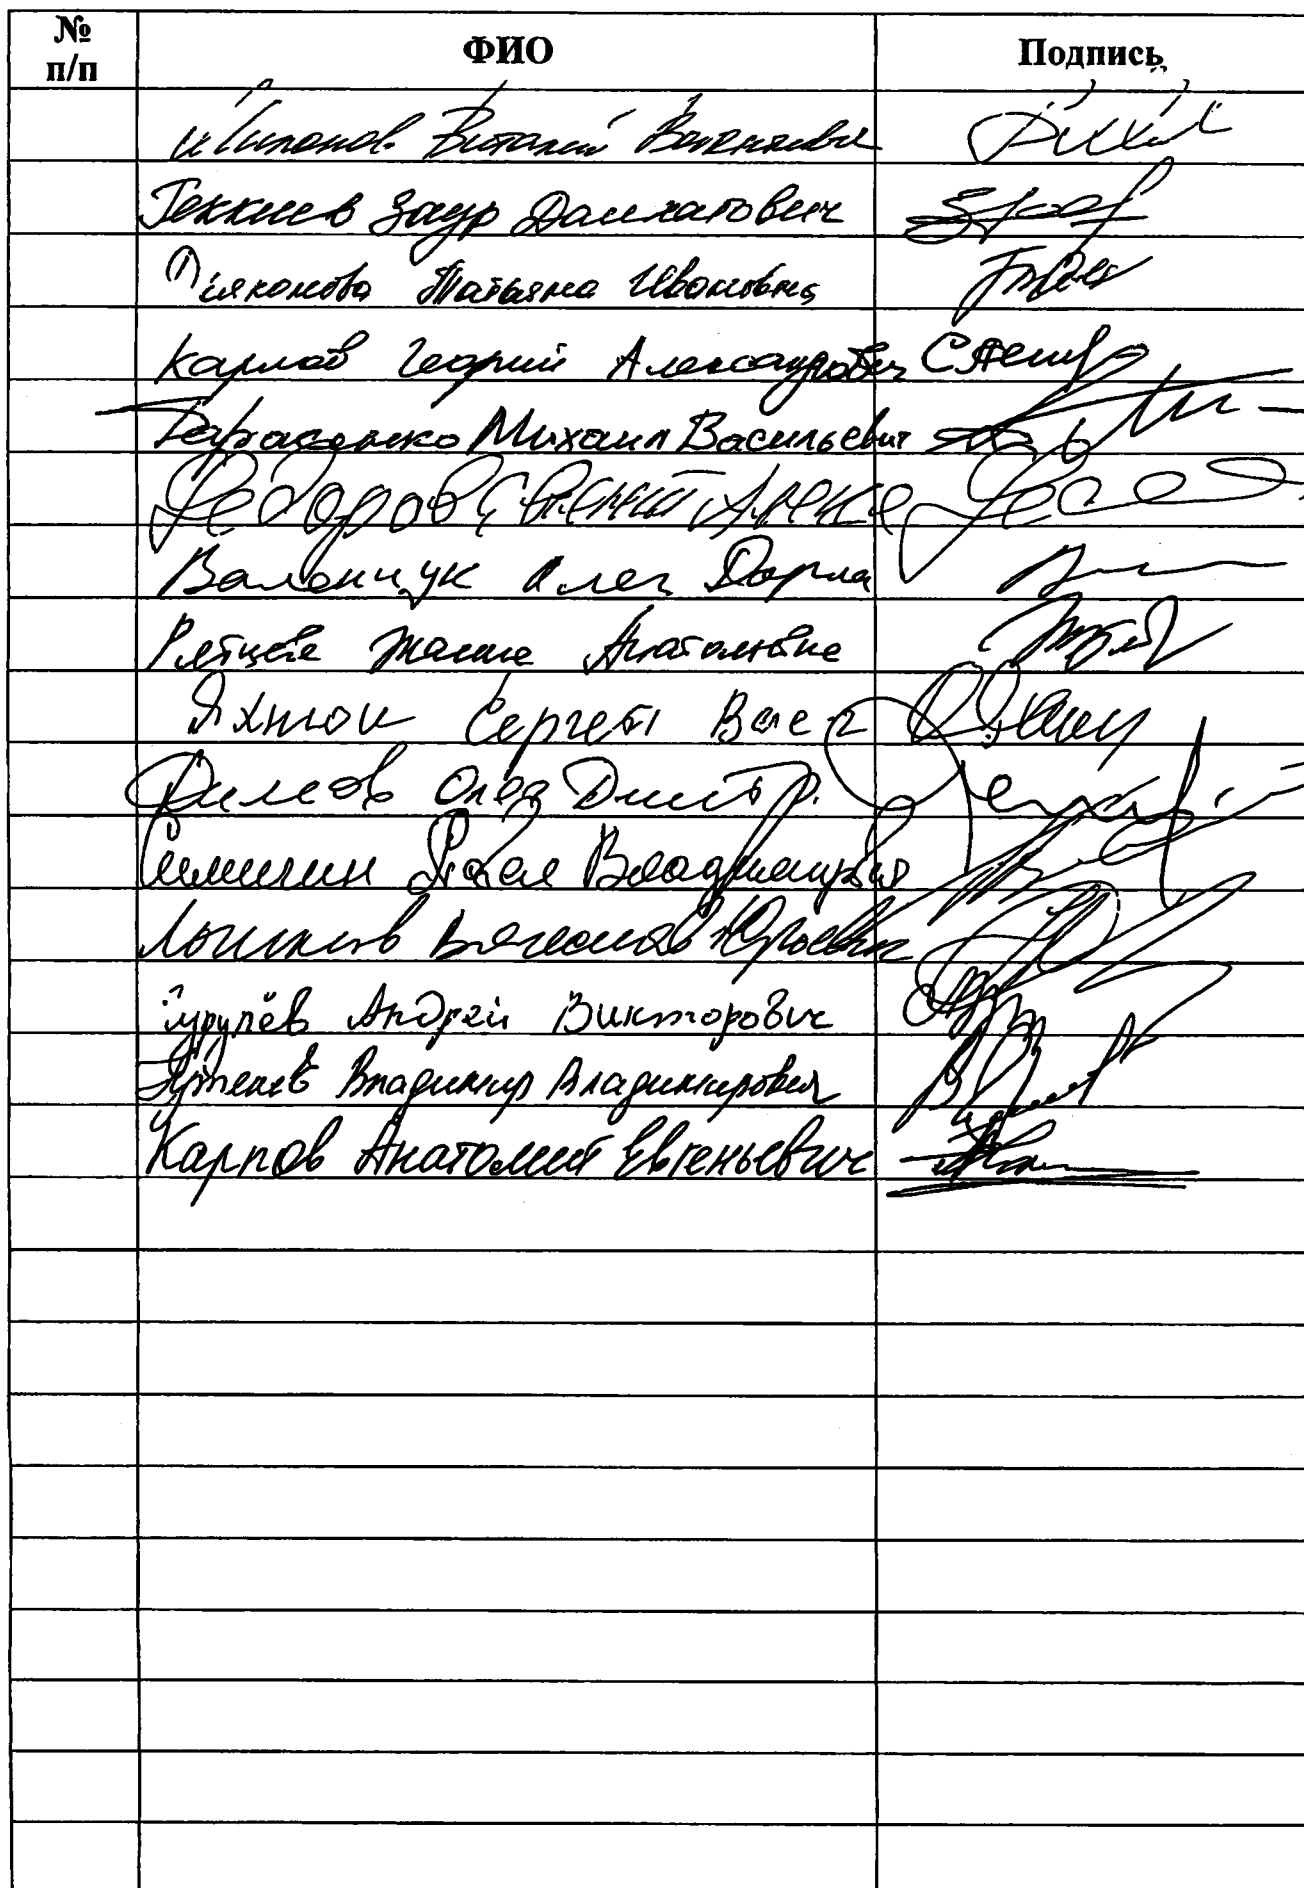 № п/п ФИО Подпись
Милонов Виталий Валентинович
Геккиев Заур Далхатович
Дьяконова Татьяна Ивановна
Карлов Георгий Александрович
Тарасенко Михаил Васильевич
Федоров Евгений Алекс
Валенчук Олег Дорид
Рябцева Жанна Анатольевна
Яхнюк Сергей Вас
Олег Дмитр.
Симигин Павел Владимирович
Лысаков Вячеслав Юрьевич
Гурулёв Андрей Викторович
Владимир Владимирович
Карпов Анатолий Евгеньевич